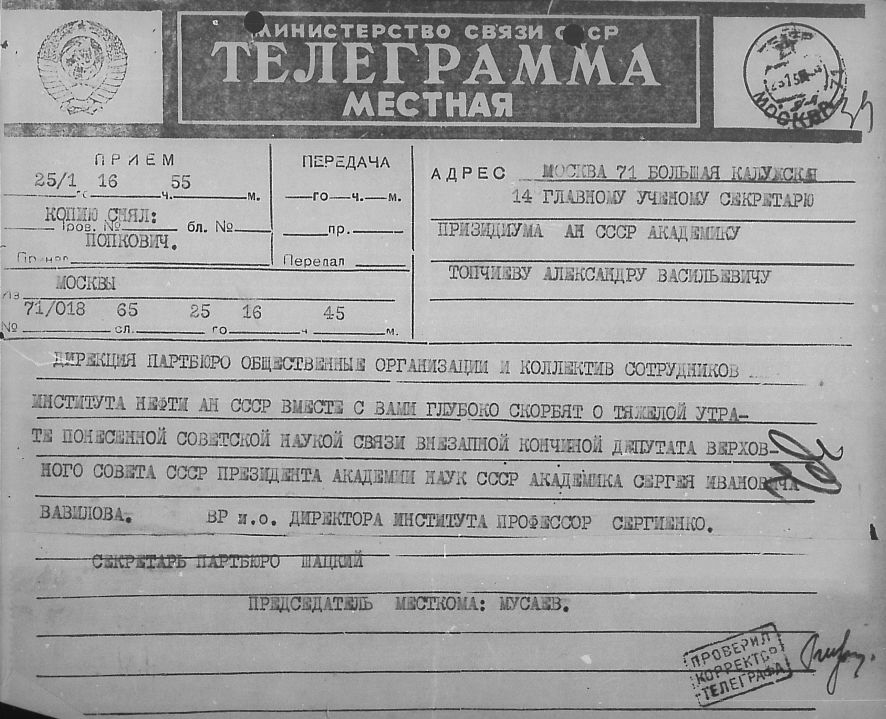 МИНИСТЕРСТВО СВЯЗИ СССР
ТЕЛЕГРАММА
МЕСТНАЯ
МОСКВА 71
ПРИЕМ
25/1 16 55
го ч. м.
КОПИЮ СНЯЛ:
Пров. № бл. №
ПОПКОВИЧ.
Принял
ПЕРЕДАЧА
го ч. м.
пр.
Передал
АДРЕС МОСКВА 71 БОЛЬШАЯ КАЛУЖСКАЯ
14 ГЛАВНОМУ УЧЕНОМУ СЕКРЕТАРЮ
ПРИЗИДИУМА АН СССР АКАДЕМИКУ
ТОПЧИЕВУ АЛЕКСАНДРУ ВАСИЛЬЕВИЧУ
МОСКВЫ
Из
71/018 65 25 16 45
№ сл. го ч м.
ДИРЕКЦИЯ ПАРТБЮРО ОБЩЕСТВЕННЫЕ ОРГАНИЗАЦИИ И КОЛЛЕКТИВ СОТРУДНИКОВ
ИНСТИТУТА НЕФТИ АН СССР ВМЕСТЕ С ВАМИ ГЛУБОКО СКОРБЯТ О ТЯЖЕЛОЙ УТРА-
ТЕ ПОНЕСЕННОЙ СОВЕТСКОЙ НАУКОЙ СВЯЗИ ВНЕЗАПНОЙ КОНЧИНОЙ ДЕПУТАТА ВЕРХОВ-
НОГО СОВЕТА СССР ПРЕЗИДЕНТА АКАДЕМИИ НАУК СССР АКАДЕМИКА СЕРГЕЯ ИВАНОВИЧА
ВАВИЛОВА. ВР и.о. ДИРЕКТОРА ИНСТИТУТА ПРОФЕССОР СЕРГИЕНКО.
СЕКРЕТАРЬ ПАРТБЮРО ШАЦКИЙ
ПРЕДСЕДАТЕЛЬ МЕСТКОМА: МУСАЕВ.
ПРОВЕРИЛ
КОРРЕКТОР
ТЕЛЕГРАФА